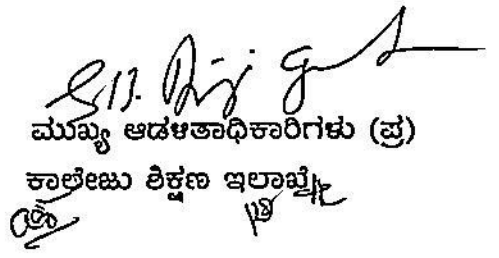 ಮುಖ್ಯ ಆಡಳಿತಾಧಿಕಾರಿಗಳು (ಪ್ರ)
ಕಾಲೇಜು ಶಿಕ್ಷಣ ಇಲಾಖೆ